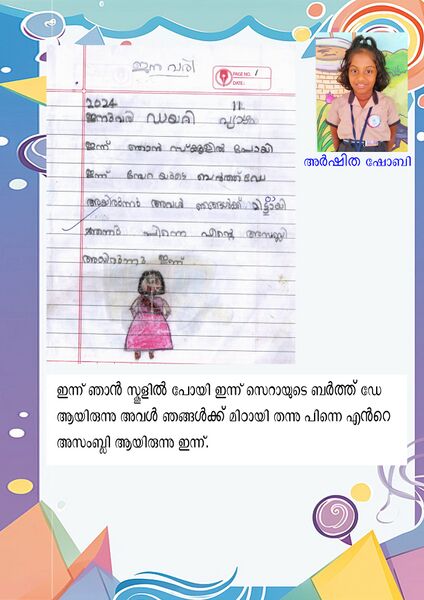 ജനുവരി
PAGE NO. 1
DATE:
2024 11
ജനുവരി ഡയറി വ്യാഴം
ഇന്ന് ഞാൻ സ്കൂളിൽ പോയി
ഇന്ന് സേറയുടെ ബർത്ത് ഡേ
ആയിരുന്നു അവൾ ഞങ്ങൾക്ക് മിട്ടായി
തന്നു പിന്നെ എന്റെ അസംബ്ലി
ആയിരുന്നു ഇന്ന്
അർഷിത ഷോബി
ഇന്ന് ഞാൻ സ്കൂളിൽ പോയി ഇന്ന് സെറായുടെ ബർത്ത് ഡേ
ആയിരുന്നു അവൾ ഞങ്ങൾക്ക് മിഠായി തന്നു പിന്നെ എൻറെ
അസംബ്ലി ആയിരുന്നു ഇന്ന്.